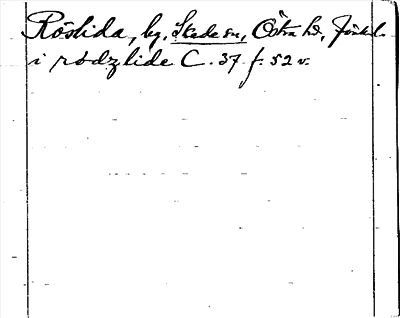 Röslida, by, Skede sn, Östra hd, Jönk. l.
i rødzlide C. 37 f. 52 v.